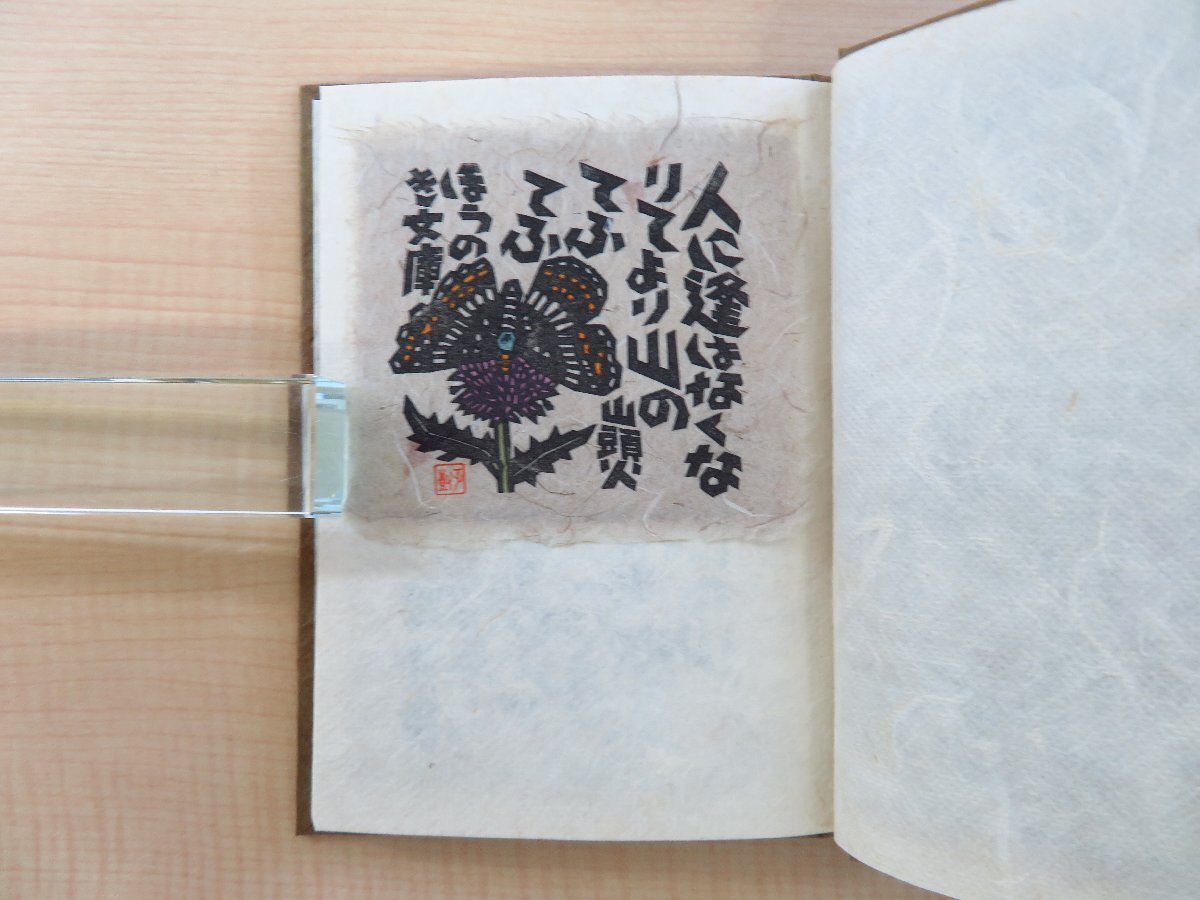 人に逢はなくな
りてより山の
てふ
てふ
山頭火
ほうの
き文庫